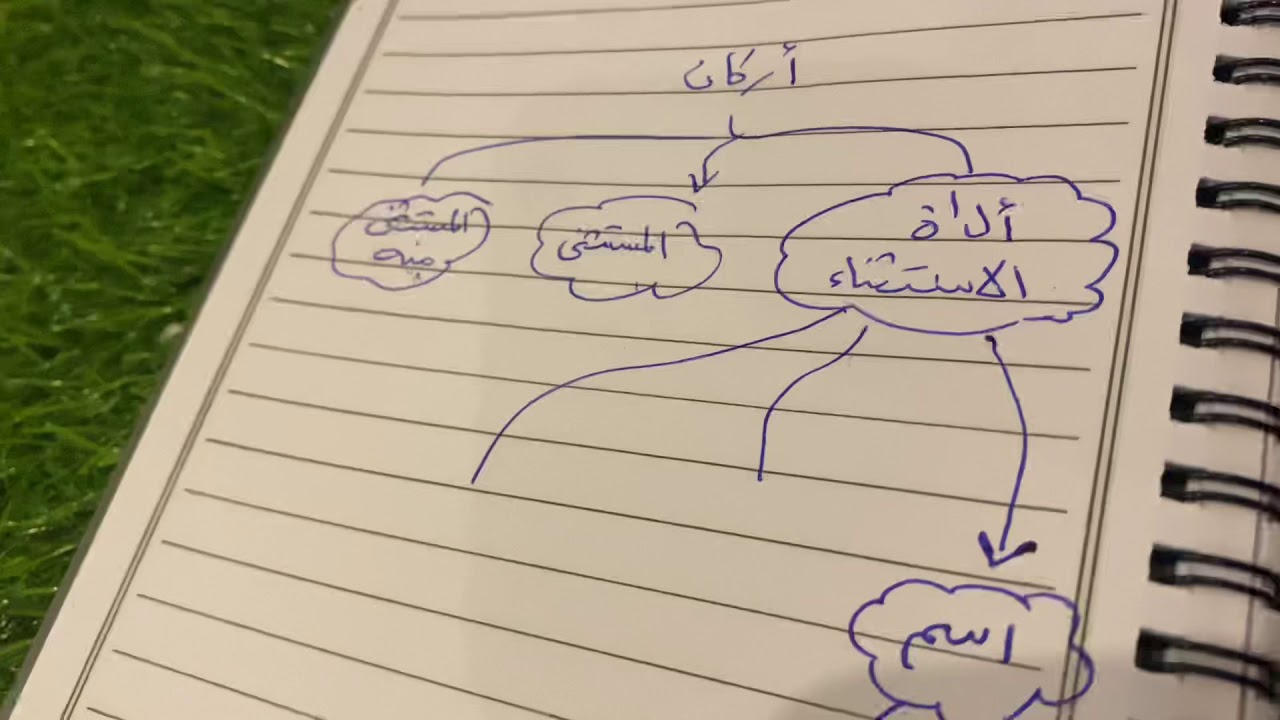 أركان
أداة
الاستثناء
المستثنى
المستثنى
منه
اسم